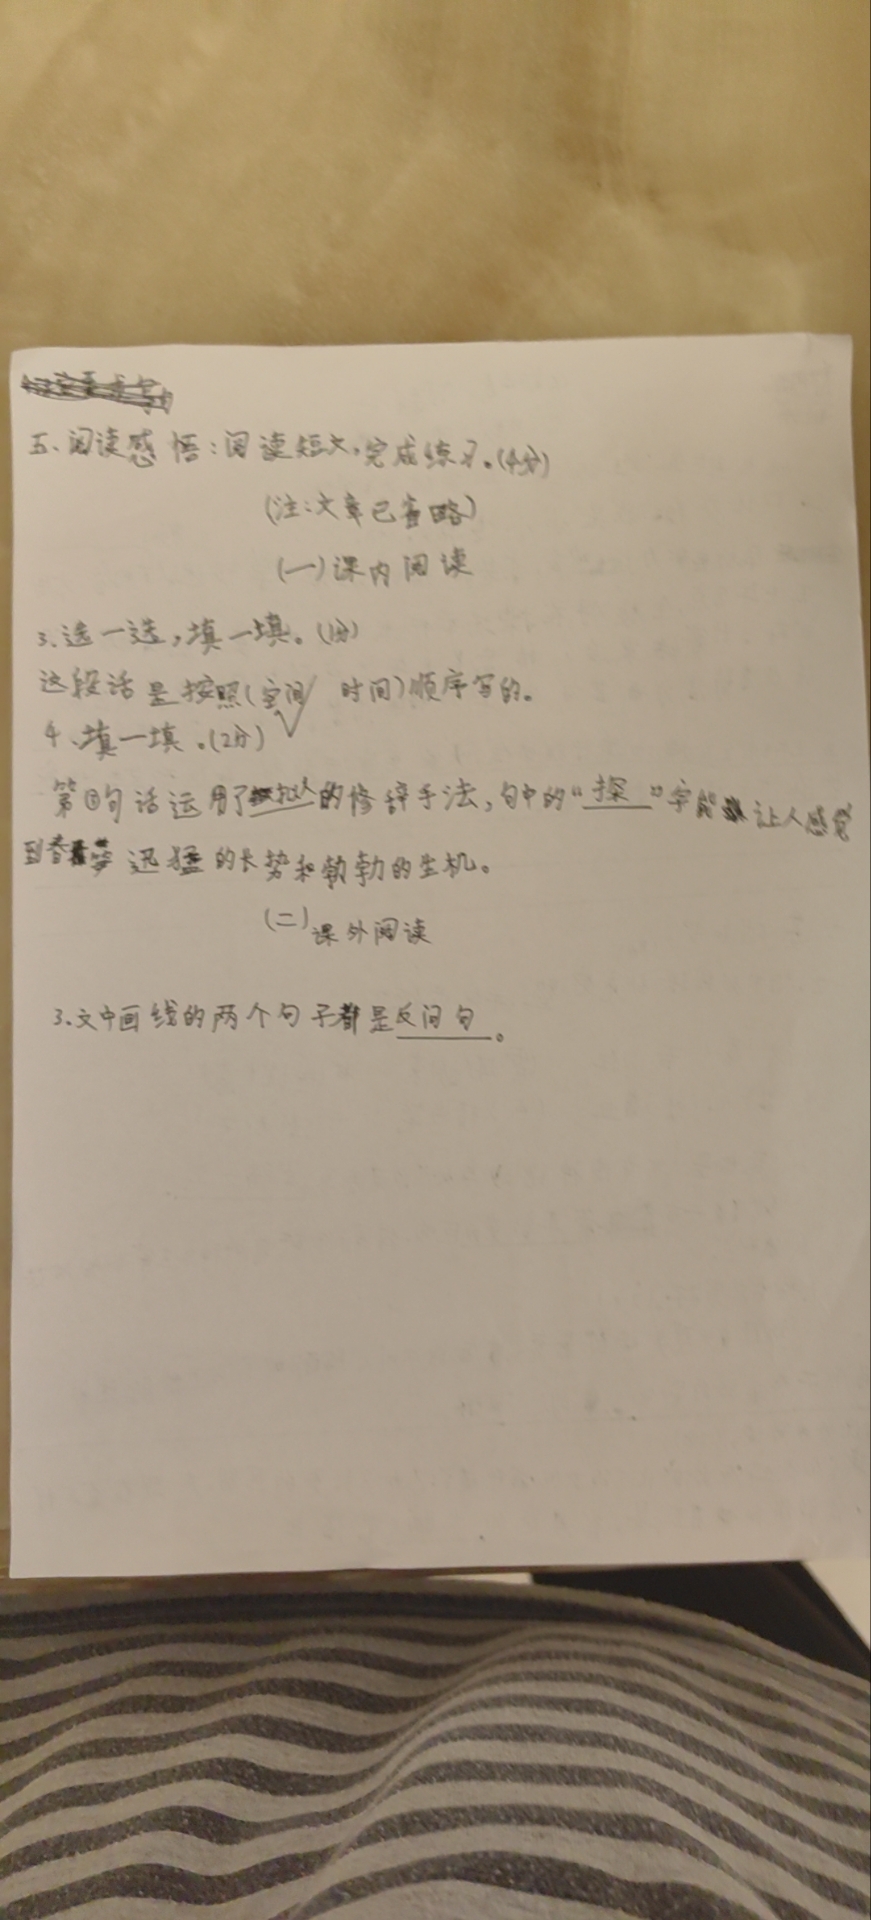 五、阅读感悟:阅读短文,完成练习。(4分)
(注:文章已省略)
(一)课内阅读
3.选一选,填一填。(1分)
这段话是按照(空间 时间)顺序写的。
4、填一填。(2分)
第①句话运用了拟人的修辞手法,句中的“探”字能让人感觉
到春笋迅猛的长势和勃勃的生机。
(二)课外阅读
3.文中画线的两个句子都是反问句。